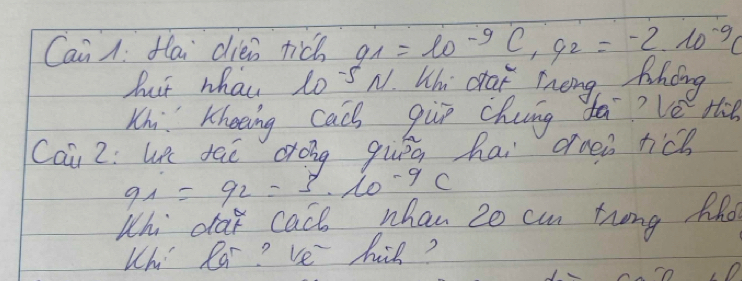 Câu 1: Hai điện tích q1 = 10⁻⁹ C, q2 = -2.10⁻⁹ C
hút nhau 10⁻⁵ N. Khi đặt trong không
khí. Khoảng cách giữa chúng là? Vẽ hình
Câu 2: lực tác động giữa hai điện tích
q1 = q2 = 3.10⁻⁹ C
Khi đặt cách nhau 20 cm trong khô
khí là? Vẽ hình?